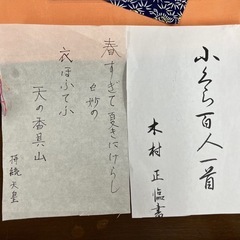 小くら百人一首
木村正臨書
春すぎて夏きにけらし
白妙の
衣ほすてふ
天の香具山
持統天皇